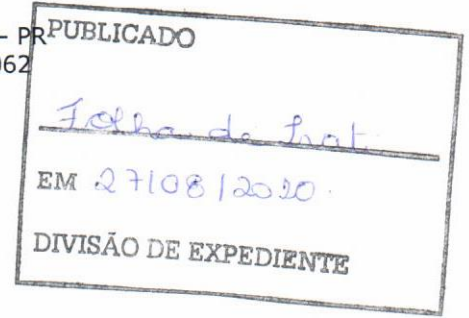 - PR
062
PUBLICADO
Folha de Irati
EM 27/08/2020.
DIVISÃO DE EXPEDIENTE